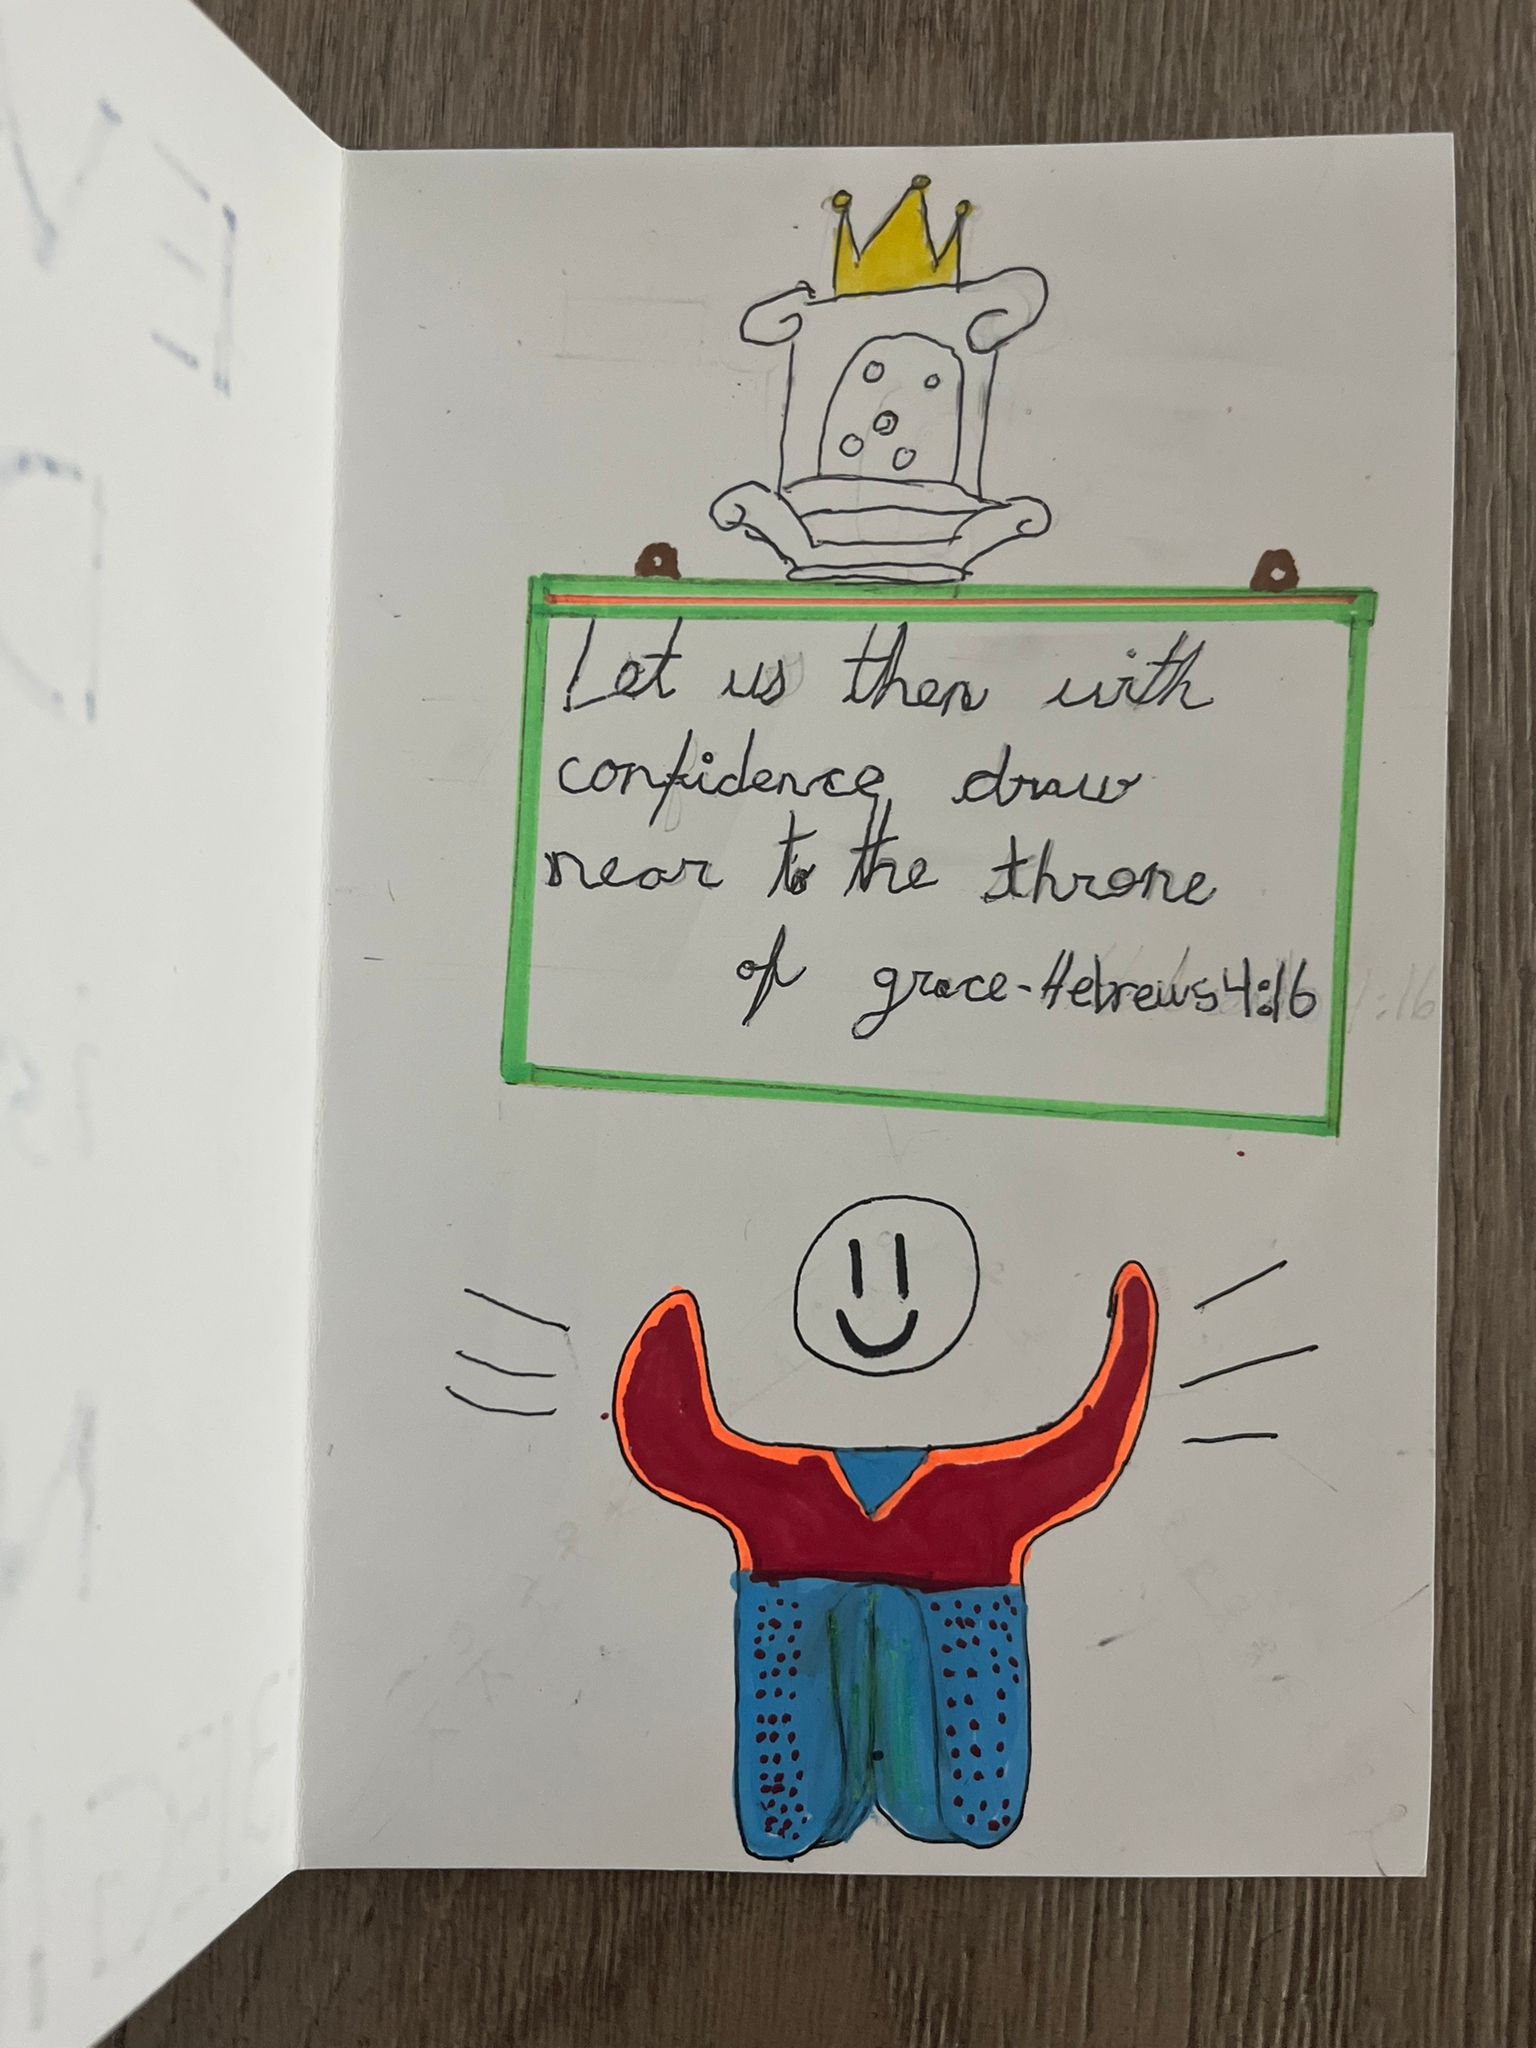 Let us then with
confidence draw
near to the throne
of grace-Hebrews 4:16